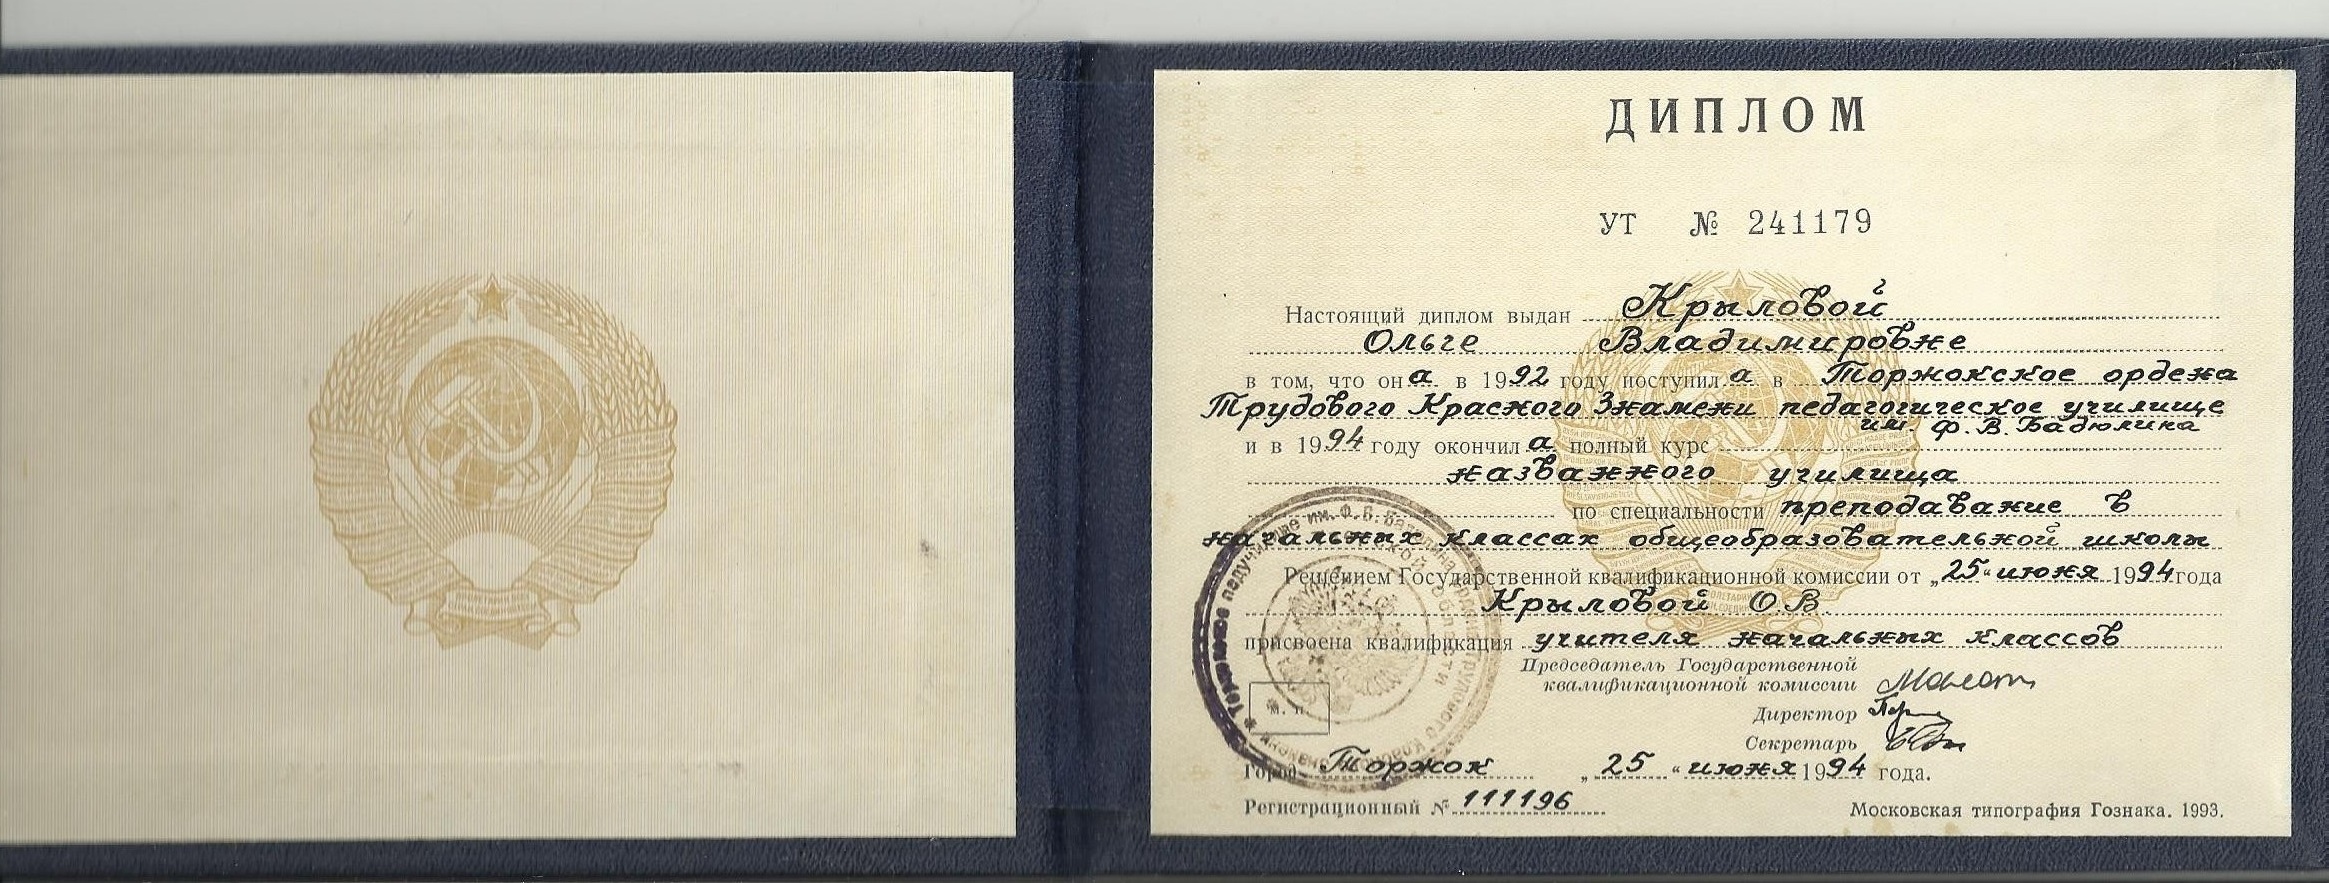 ДИПЛОМ
УТ № 241179
Настоящий диплом выдан Крыловой
Ольге Владимировне
в том, что она в 1992 году поступила в Торжокское ордена
Трудового Красного Знамени педагогическое училище
им. Ф.В.Бадюлина
и в 1994 году окончила полный курс
названного училища
по специальности преподавание в
начальных классах общеобразовательной школы
Решением Государственной квалификационной комиссии от „25“ июня 1994 года
Крыловой О.В.
присвоена квалификация учителя начальных классов
Председатель Государственной
квалификационной комиссии
Директор
Секретарь
М. П.
Город Торжок „25“ июня 1994 года.
Регистрационный № 111196
Московская типография Гознака. 1993.